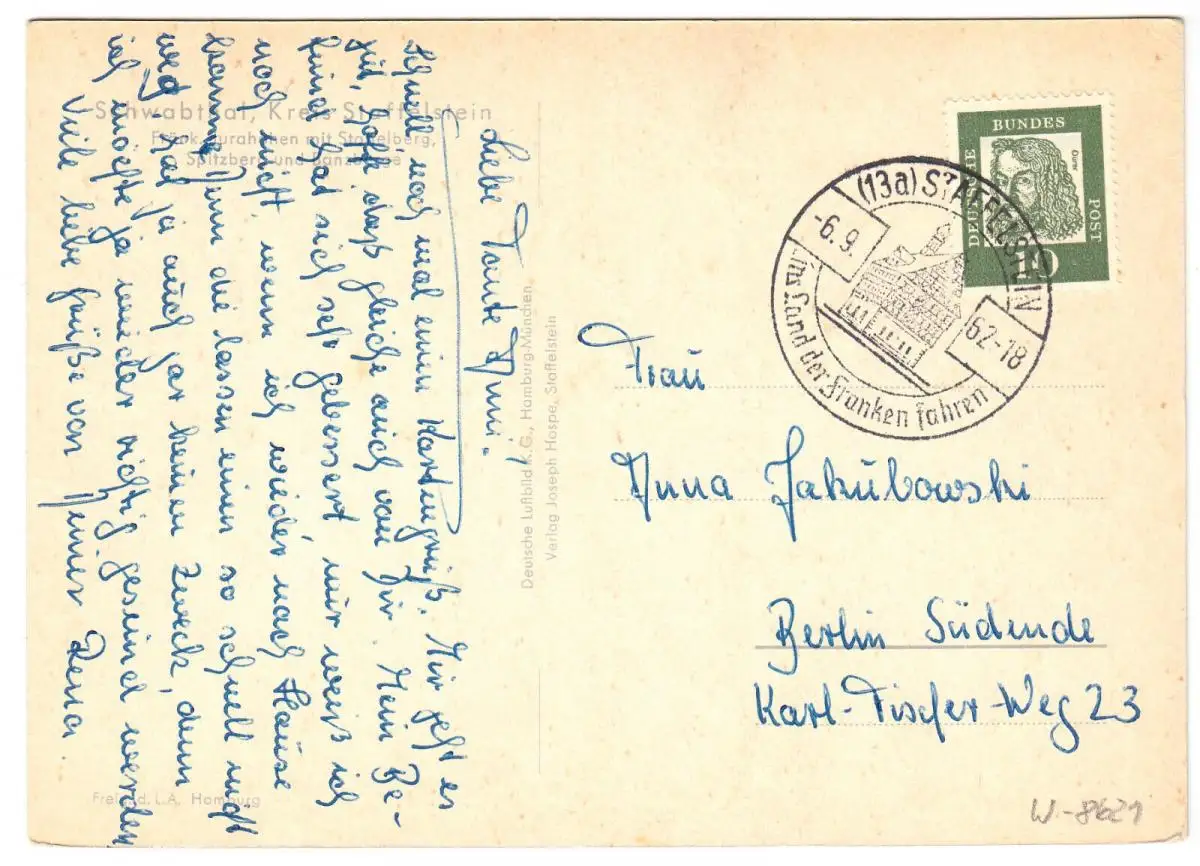 Schwabthal, Kreis Staffelstein
Fränk. Jurahöhen mit Staffelberg,
Spitzberg und Banzberge
Liebe Tante Anni!
Schnell noch mal einen Kartengruß. Mir geht es
gut, hoffe daß gleiche auch von Dir. Mein Be-
finden hat sich sehr gebessert nur weis ich
noch nicht, wenn ich wieder nach Hause
komme. Denn die lassen einen so schnell nicht
weg. Hat ja auch gar keinen Zweck, denn
ich möchte ja wieder richtig gesund werden
Viele liebe Grüße von Deiner Rena.
Freigd. L.A. Hamburg
Deutsche Luftbild K.G., Hamburg-München
Verlag Joseph Hospe, Staffelstein
DEUTSCHE
BUNDES
POST
Dürer
10
(13a) STAFFELSTEIN
-6.9.
62-18
Ins Land der Franken fahren
Frau
Anna Jakubowski
Berlin Südende
Karl-Fischer-Weg 23
W-8621